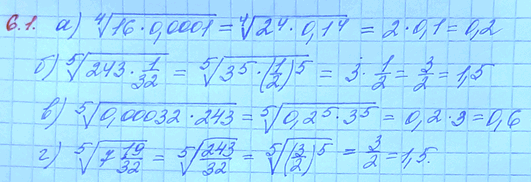 6.1. а) ⁴√(16 · 0,0001) = ⁴√(2⁴ · 0,1⁴) = 2 · 0,1 = 0,2
б) ⁵√(243 · 1/32) = ⁵√(3⁵ · (1/2)⁵) = 3 · 1/2 = 3/2 = 1,5
в) ⁵√(0,00032 · 243) = ⁵√(0,2⁵ · 3⁵) = 0,2 · 3 = 0,6
г) ⁵√(7 19/32) = ⁵√(243/32) = ⁵√((3/2)⁵) = 3/2 = 1,5.